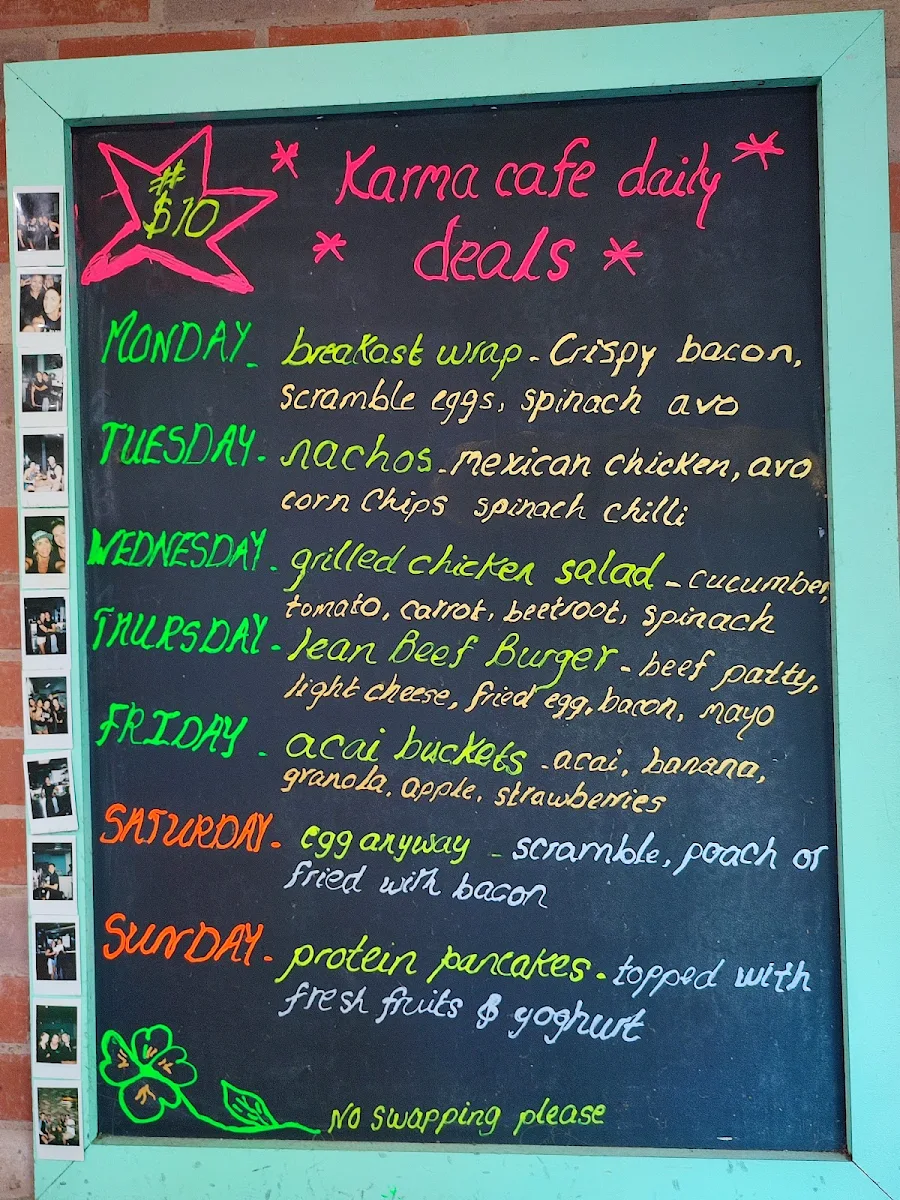 # $10
* Karma cafe daily *
* deals *
MONDAY - breakfast wrap - Crispy bacon,
scramble eggs, spinach avo
TUESDAY - nachos - mexican chicken, avo
corn Chips spinach chilli
WEDNESDAY - grilled chicken salad - cucumber,
tomato, carrot, beetroot, spinach
THURSDAY - lean Beef Burger - beef patty,
light cheese, fried egg, bacon, mayo
FRIDAY - acai buckets - acai, banana,
granola, apple, strawberries
SATURDAY - egg anyway - scramble, poach or
fried with bacon
SUNDAY - protein pancakes - topped with
fresh fruits & yoghurt
No swapping please